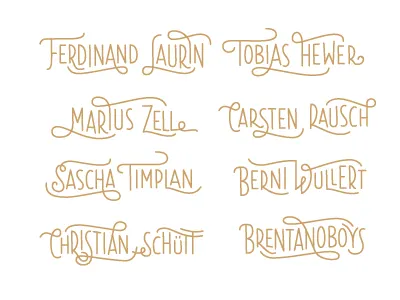 FERDINAND LAURIN
TOBIAS HEWER
MARIUS ZELL
CARSTEN RAUSCH
SASCHA TIMPLAN
BERND WULLERT
CHRISTIAN SCHÜTT
BRENTANOBOYS